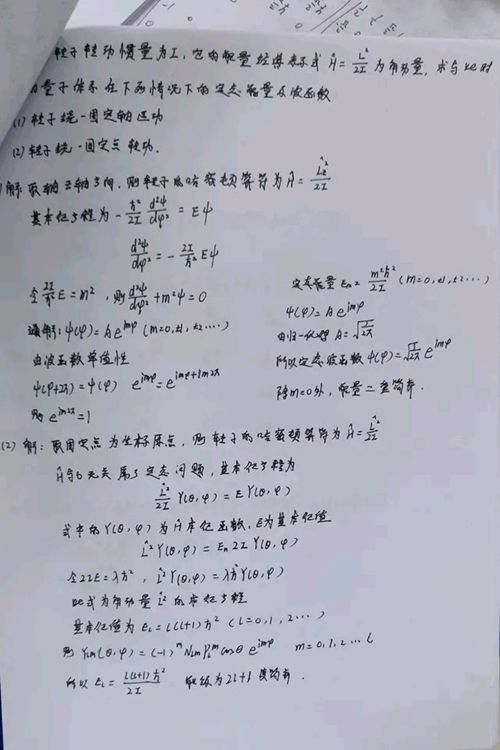 转子转动惯量为I，它的能量经典表示式 Ĥ = L²/2I 为角动量，求与此对
量子体系在下面情况下的定态能量及波函数
(1) 转子绕一固定轴运动
(2) 转子绕一固定点转动.
解：取轴 Z轴方向，则转子的哈密顿算符为 Ĥ = L̂z²/2I
其本征方程为 -ħ²/2I d²ψ/dφ² = Eψ
d²ψ/dφ² = -2I/ħ² Eψ
令 2I/ħ² E = m²，则 d²ψ/dφ² + m²ψ = 0
通解：ψ(φ) = A e^{imφ} (m=0,±1,±2....)
由波函数单值性
ψ(φ+2π) = ψ(φ) e^{imφ} = e^{imφ+im2π}
则 e^{im2π} = 1
定态能量 Em = m²ħ²/2I (m=0,±1,±2...)
ψ(φ) = A e^{imφ}
由归一化得 A = √(1/2π)
所以定态波函数 ψ(φ) = √(1/2π) e^{imφ}
除m=0外，能量二重简并.
(2) 解：取固定点为坐标原点，则转子的哈密顿算符为 Ĥ = L̂²/2I
Ĥ与t无关 属于定态问题，其本征方程为
L̂²/2I Y(θ,φ) = E Y(θ,φ)
式中的 Y(θ,φ) 为 Ĥ 本征函数，E为其本征值
L̂² Y(θ,φ) = En 2I Y(θ,φ)
令 2IE = λħ²，L̂² Y(θ,φ) = λħ² Y(θ,φ)
此式为角动量 L̂² 的本征方程
其本征值为 EL = L(L+1)ħ² (L=0,1,2...)
则 YLm(θ,φ) = (-1)^m NLm PL^m cosθ e^{imφ} m=0,1,2... L
所以 EL = L(L+1)ħ²/2I 能级为 2L+1 度简并.